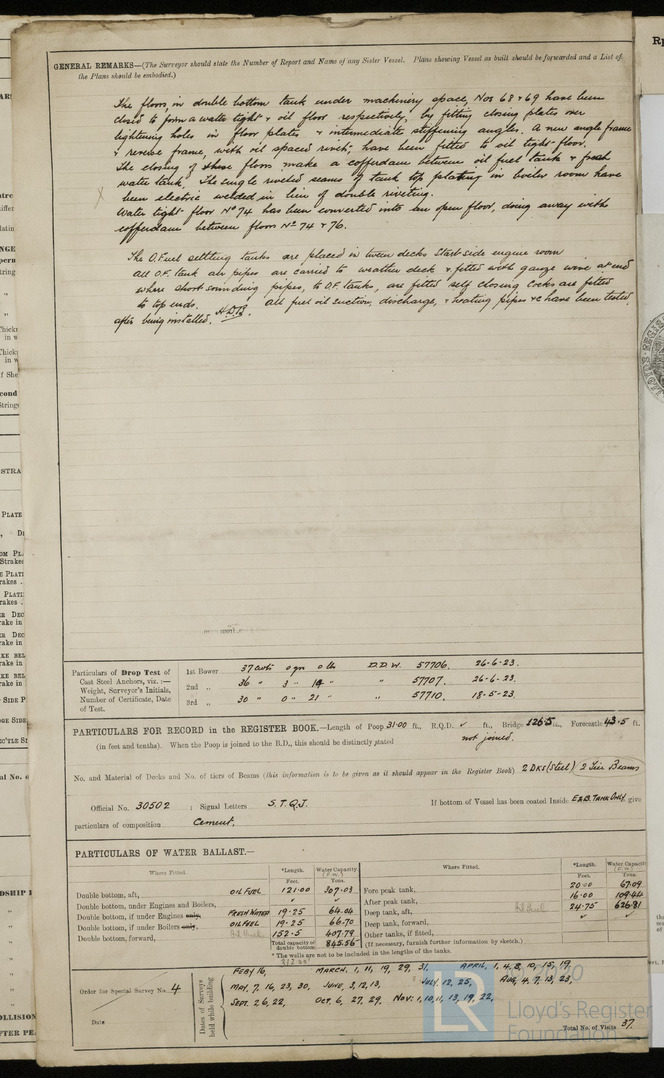 GENERAL REMARKS—(The Surveyor should state the Number of Report and Name of any Sister Vessel. Plans showing Vessel as built should be forwarded and a List of
the Plans should be embodied.)
The floors, in double bottom tank under machinery space, Nos 68 & 69 have been
closed to form a water tight & oil floor respectively, by fitting closing plates over
lightening holes in floor plates & intermediate stiffening angles. A new angle frame
& reverse frame, with oil spaced rivets, have been fitted to oil tight floor.
The closing of these floors make a cofferdam between oil fuel tank & fresh
water tank. The single riveted seams of tank top plating in boiler room have
X been electric welded in lieu of double riveting.
Water tight floor No 74 has been converted into an open floor, doing away with
cofferdam between floors Nos 74 & 76.
The O.Fuel settling tanks are placed in tween decks Starb side engine room
All O.F. tank air pipes are carried to weather deck & fitted with gauze wire at end
where short sounding pipes, to O.F. tanks, are fitted self closing cocks are fitted
to top ends. All fuel oil suction, discharge, & heating pipes &c have been tested
after being installed. H.D.B.
Particulars of Drop Test of
Cast Steel Anchors, viz.:—
Weight, Surveyor's Initials,
Number of Certificate, Date
of Test.
1st Bower 37 cwts 0 qrs 0 lbs D.D.W. 57706. 26-6-23.
2nd „ 36 " 3 " 14 " " 57707. 26-6-23.
3rd „ 30 " 0 " 21 " " 57710. 18-5-23.
PARTICULARS FOR RECORD in the REGISTER BOOK.—Length of Poop 31·00 ft., R.Q.D. ✓ ft., Bridge 126·5 ft., Forecastle 43·5 ft.
(in feet and tenths). When the Poop is joined to the B.D., this should be distinctly stated not joined.
No. and Material of Decks and No. of tiers of Beams (this information is to be given as it should appear in the Register Book) 2 Dks (Steel) 2 Tier Beams
Official No. 30502 ; Signal Letters S.T.Q.J. If bottom of Vessel has been coated Inside E&B. Tank Only give
particulars of composition Cement.
PARTICULARS OF WATER BALLAST.—
Where Fitted. *Length. Feet. Water Capacity. Tons.
Double bottom, aft, OIL FUEL 121·00 307·03
Double bottom, under Engines and Boilers, ✓ ✓
Double bottom, if under Engines only, FRESH WATER 19·25 64·04
Double bottom, if under Boilers only, OIL FUEL 19·25 66·70
Double bottom, forward, 152·5 407·79
Total capacity of double bottom 845·56
Where Fitted. *Length. Feet. Water Capacity. Tons.
Fore peak tank, 20·00 67·09
After peak tank, 16·00 109·44
Deep tank, aft, 24·75 626·81
Deep tank, forward, ✓ ✓
Other tanks, if fitted,
(If necessary, furnish further information by sketch.)
* The wells are not to be included in the lengths of the tanks.
Order for Special Survey No. 4
Date
Dates of Surveys held while building
FEBY 16, MARCH. 1, 11, 19, 29, 31, APRIL, 1, 4, 8, 10, 15, 19,
MAY, 7, 16, 23, 30, JUNE, 3, 12, 13, JULY, 12, 25, AUG, 4, 7, 13, 23,
SEPT. 2, 6, 22, OCT. 6, 27, 29, NOV: 1, 10, 11, 13, 19, 22,
Total No. of Visits 37.
LR
Lloyd's Register
Foundation